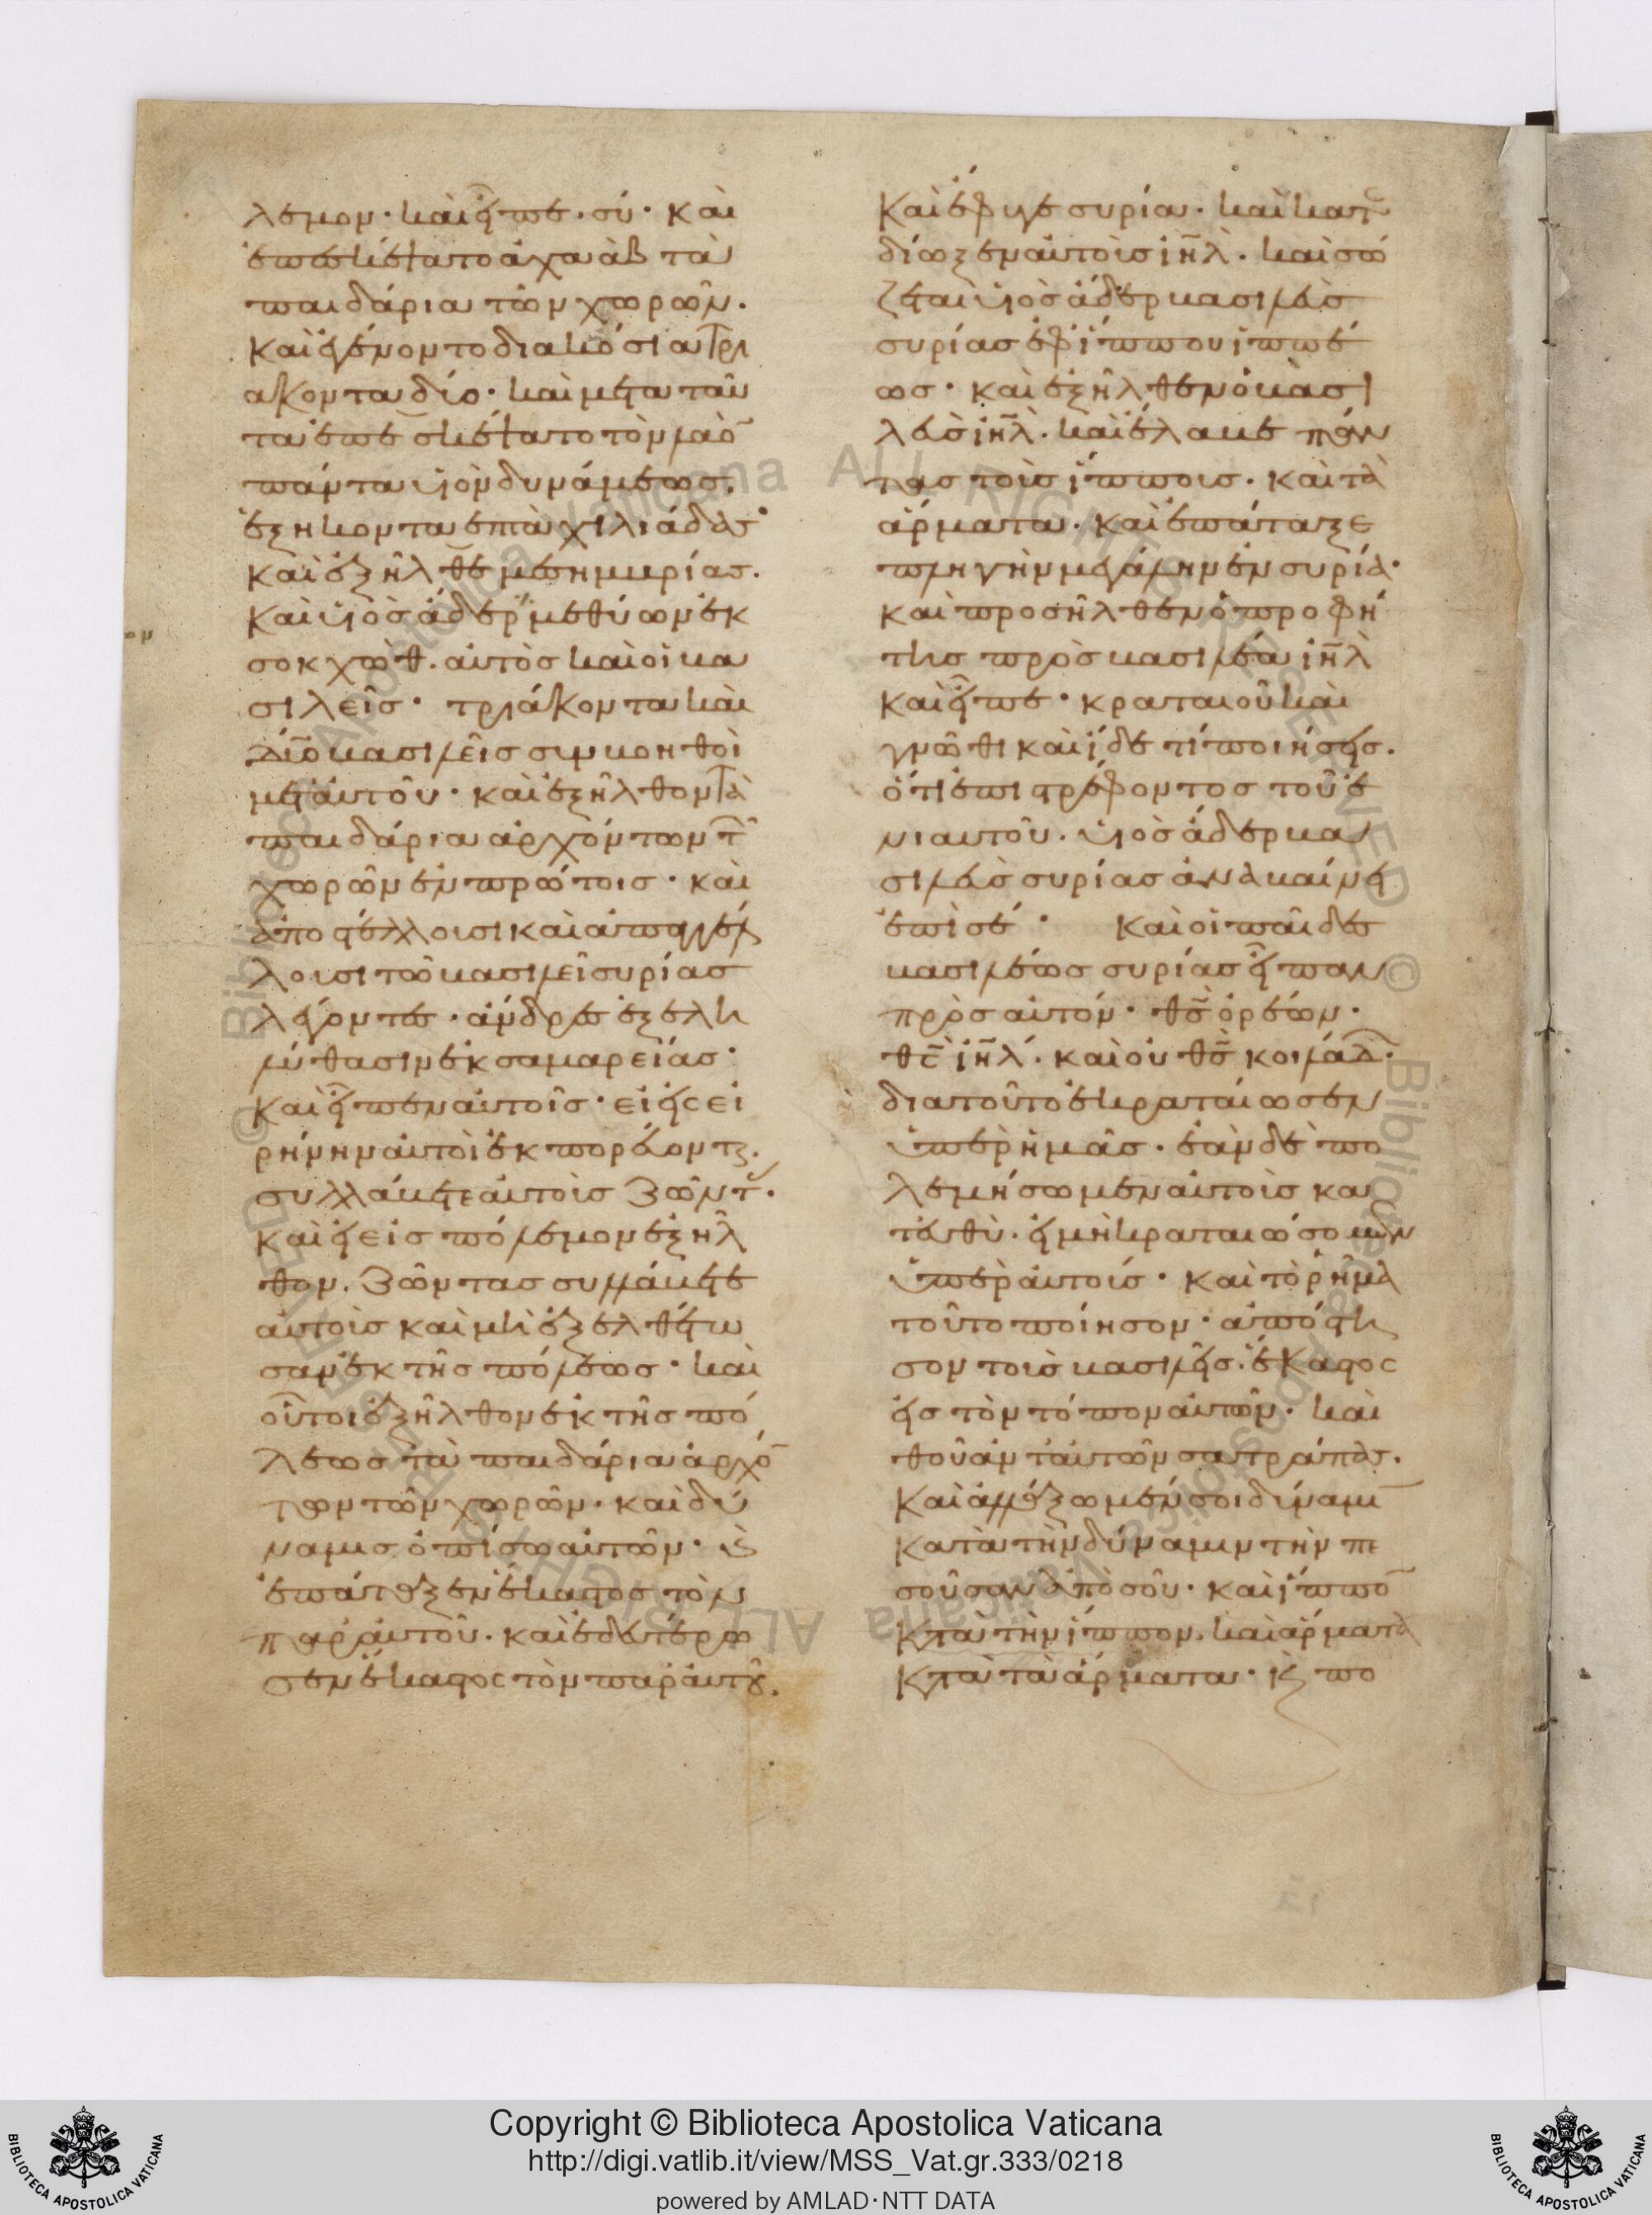 λεμον· καὶ εἶπε· σύ· Καὶ
ἐπεσκέψατο ἀχαὰβ τὰ
παιδάρια τῶν χωρῶν.
Καὶ ἐγένοντο διακόσια τρι
άκοντα δύο· καὶ μετα ταῦ
τα ἐπεσκέψατο τὸν λαὸ̄
πάντα υἱὸν δυνάμεως.
ἑξήκοντα ἑπτὰ χιλιάδας·
Καὶ ἐξῆλθε μεσημβρίας.
Καὶ υἱὸς ἄδερ μεθύων ἐκ
σοκχὼθ. αὐτὸς καὶ οἱ βα
σιλεῖς· τριάκοντα καὶ
δύο βασιλεῖς συμβοηθοὶ
μετ' αὐτοῦ· καὶ ἐξῆλθον τὰ
παιδάρια ἀρχόντων τ͂
χωρῶν ἐν πρώτοις· καὶ
ἀποστέλλουσι καὶ ἀπαγγέλ
λουσι τῶ βασιλεῖ συρίας
λέγοντες· ἄνδρες ἐξελη
λύθασιν ἐκ σαμαρείας·
Καὶ εἶπεν αὐτοῖς· εἰ εἰς εἰ
ρήνην αὐτοὶ ἐκπορεύονται.
συλλάβετε αὐτοὺς ζῶντ̅.
Καὶ εἰ εἰς πόλεμον ἐξῆλ
θον. ζῶντας συλλάβετε
αὐτοὺς καὶ μὴ ἐξελθέτω
σαν ἐκ τῆς πόλεως· καὶ
οὗτοι ἐξῆλθον ἐκ τῆς πό
λεως τὰ παιδάρια ἀρχό̄
των τῶν χωρῶν· καὶ δύ
ναμις ὀπίσω αὐτῶν· καὶ
ἐπάταξεν ἕκαστος τὸν
παρ' αὐτοῦ. καὶ ἐδευτέρω
σεν ἕκαστος τὸν παρ' αὐτοῦ.
Καὶ ἔφυγε συρία· καὶ κατε
δίωξεν αὐτοὺς ἰη̄λ̀. καὶ σώ
ζεται υἱὸς ἄδερ βασιλεὺς
συρίας ἐφ' ἵππου ἱππέ
ως· καὶ ἐξῆλθεν ὁ βασι
λεὺς ἰη̄λ̀. καὶ ἔλαβε πάν
τας τοὺς ἵππους· καὶ τὰ
ἅρματα. καὶ ἐπάταξε
πληγὴν μεγάλην ἐν συρία·
Καὶ προσῆλθεν ὁ προφή
της πρὸς βασιλέα ἰη̄λ̀
Καὶ εἶπε· κραταιοῦ καὶ
γνῶθι καὶ ἴδε τί ποιήσεις.
ὅτι ἐπιστρέφοντος τοῦ ἐ
νιαυτοῦ. υἱὸς ἄδερ βα
σιλεὺς συρίας ἀναβαίνει
ἐπὶ σέ· Καὶ οἱ παῖδες
βασιλέως συρίας εἶπαν
πρὸς αὐτόν· θ̄ς̄ ὀρέων·
θ̄ς̄ ἰη̄λ́. καὶ οὐ θ̄ς̄ κοιλάδ͂·
διατοῦτο ἐκραταίωσεν
ὑπὲρ ἡμᾶς. ἐὰν δὲ πο
λεμήσωμεν αὐτοὺς κα
τ' εὐθὺ. εἰ μὴ κραταιώσομεν
ὑπὲρ αὐτούς· καὶ τὸ ῥῆμα
τοῦτο ποίησον· ἀπόστη
σον τοὺς βασιλεῖς. ἕκαστος
εἰς τὸν τόπον αὐτῶν. καὶ
θοῦ ἀντ' αὐτῶν σατράπας.
Καὶ ἀλλάξωμέν σοι δύναμῑ
κατὰ τὴν δύναμιν τὴν πε
σοῦσαν ἀπὸ σοῦ· καὶ ἵππο̄
κατὰ τὴν ἵππον. καὶ ἅρματα
κατὰ τὰ ἅρματα· καὶ πο
Copyright © Biblioteca Apostolica Vaticana
http://digi.vatlib.it/view/MSS_Vat.gr.333/0218
powered by AMLAD·NTT DATA